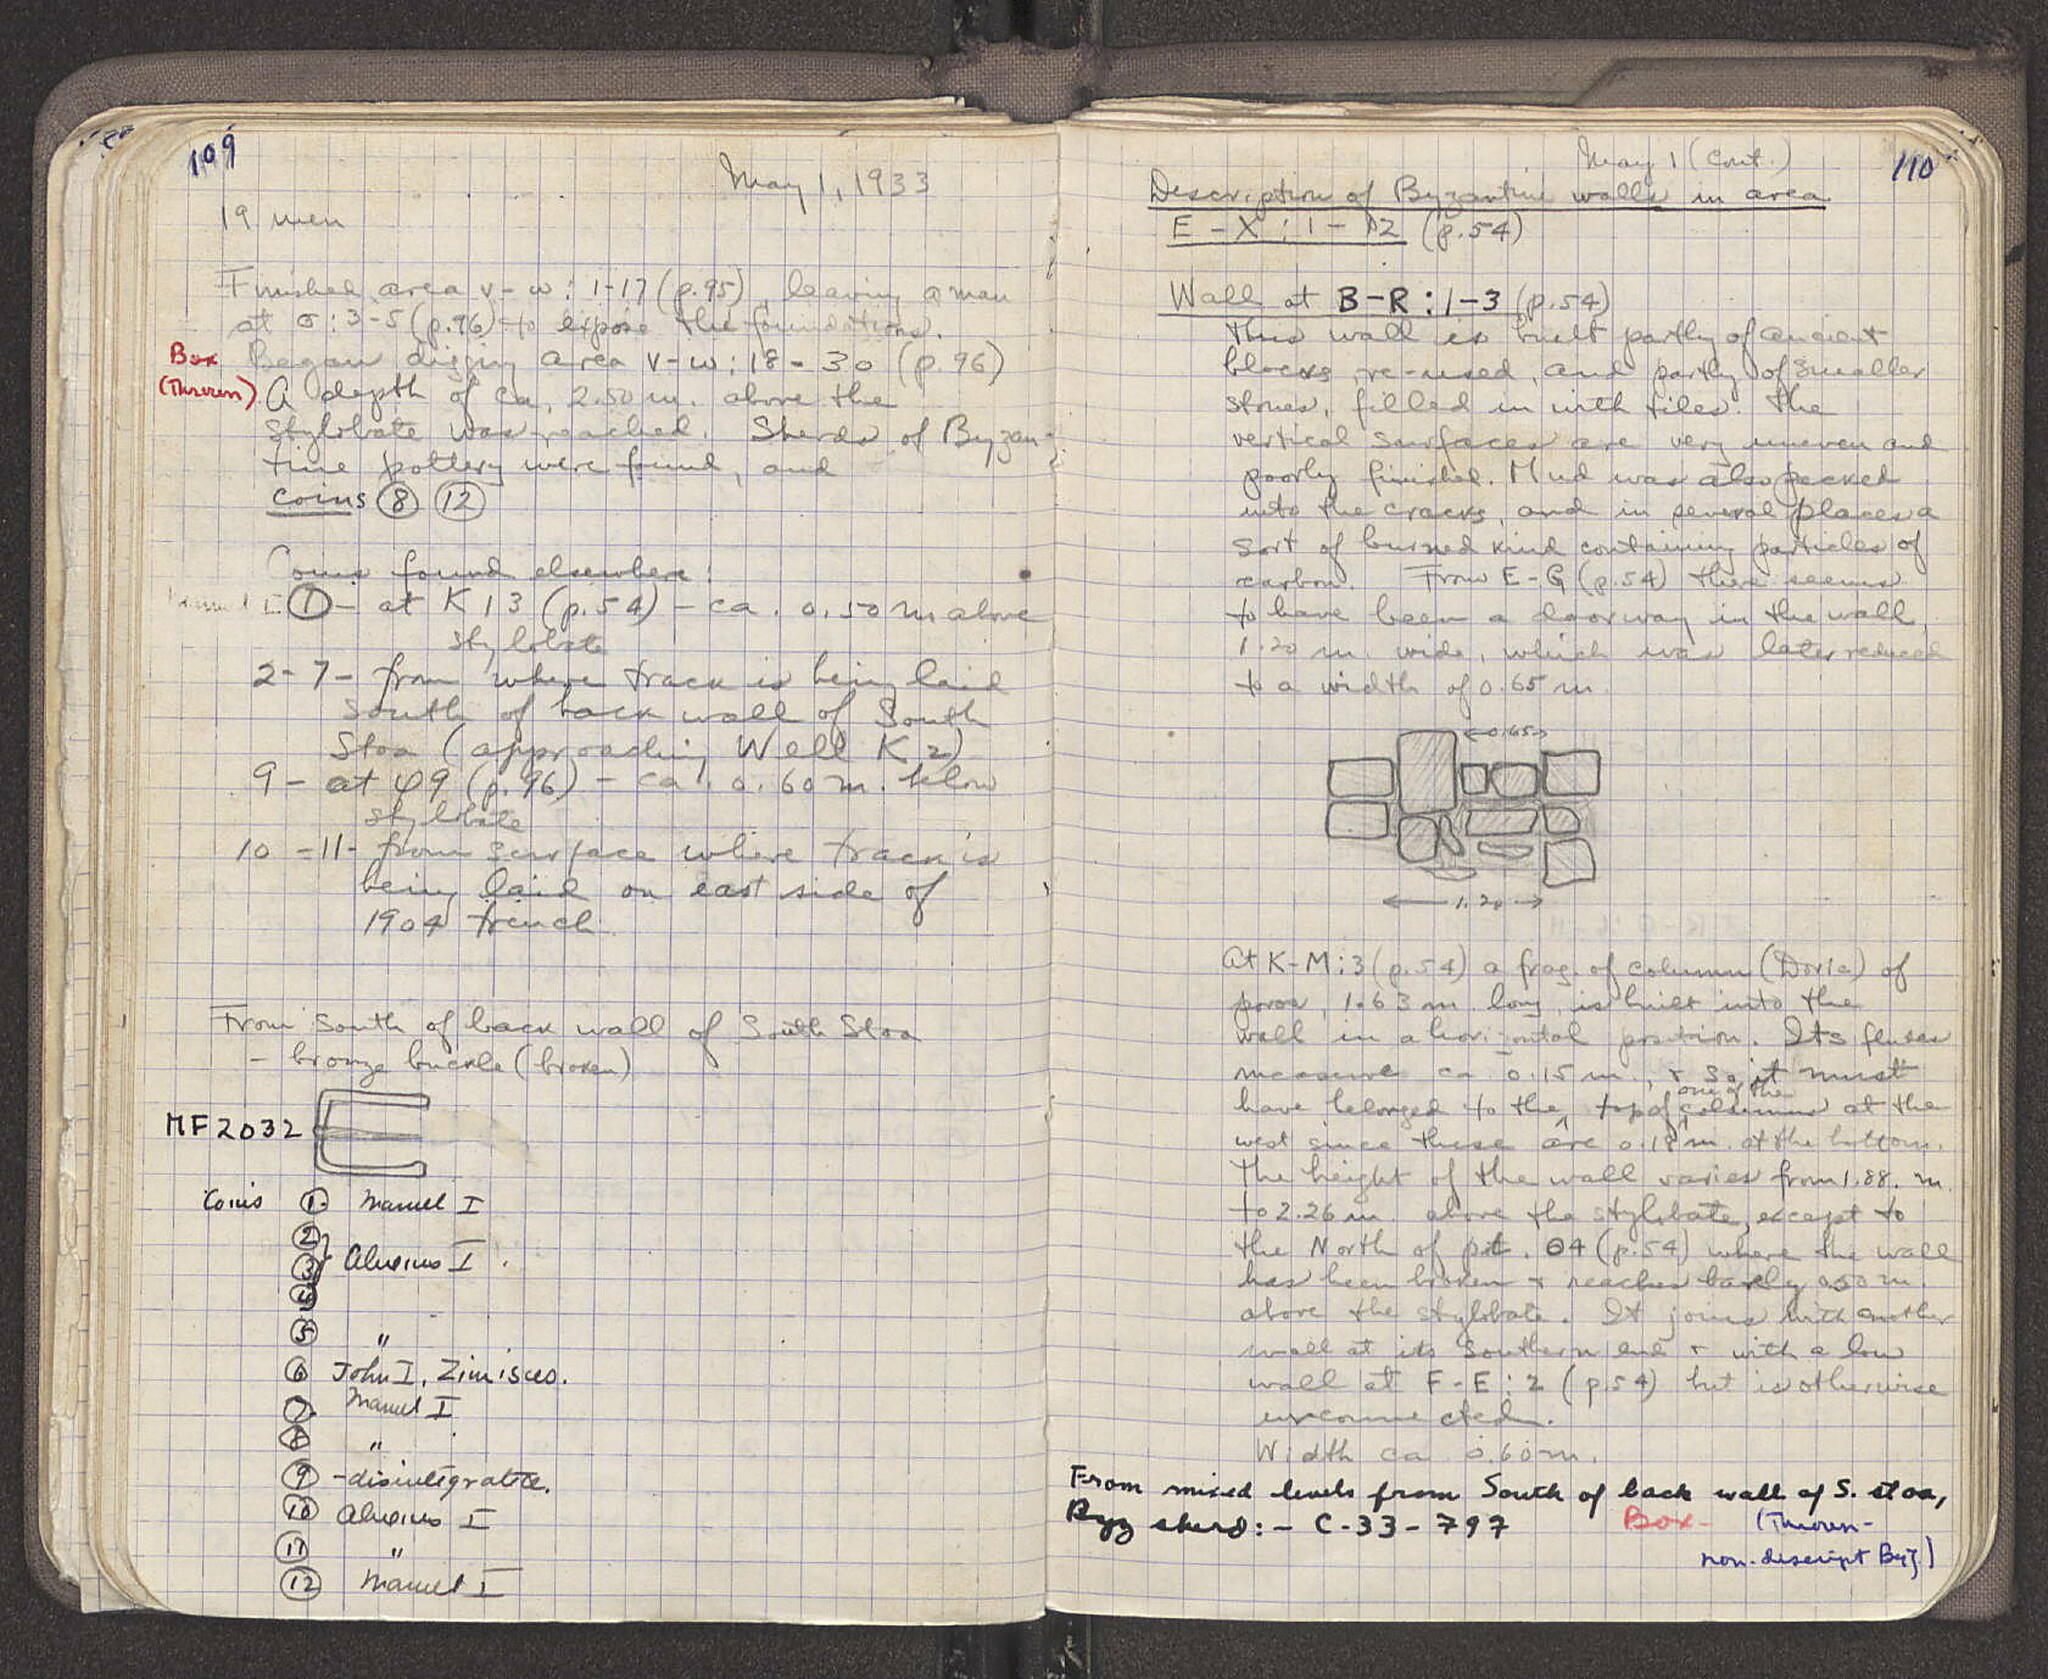 109
May 1, 1933
19 men
Finished area v-w: 1-17 (p.95), leaving a man
at σ: 3-5 (p.96) to expose the foundations.
Box
(Thrown)
Began digging area v-w: 18-30 (p.96)
A depth of ca. 2.50 m. above the
stylobate was reached. Sherds of Byzan-
tine pottery were found, and
coins ⑧ ⑫
Coins found elsewhere:
Manuel I ① - at K13 (p.54) - ca. 0.50 m above
stylobate
2-7 - from where track is being laid
south of back wall of South
Stoa (approaching Well K2)
9 - at φ9 (p.96) - ca. 0.60 m. below
stylobate
10-11- from surface where track is
being laid on east side of
1904 trench.
From south of back wall of South Stoa
- bronze buckle (broken)
MF 2032
Coins ① Manuel I
②
③ Alexius I.
④
⑤ "
⑥ John I, Zimisces.
⑦ Manuel I
⑧ "
⑨ - disintegrated.
⑩ Alexius I
⑪ "
⑫ Manuel I
110
May 1 (Cont.)
Description of Byzantine walls in area
E-X: 1-12 (p.54)
Wall at B-R: 1-3 (p.54)
This wall is built partly of ancient
blocks, re-used, and partly of smaller
stones, filled in with tiles. The
vertical surfaces are very uneven and
poorly finished. Mud was also packed
into the cracks, and in several places a
sort of burned kind containing particles of
carbon. From E-G (p.54) there seems
to have been a doorway in the wall,
1.20 m. wide, which was later reduced
to a width of 0.65 m.
0.65
1.20
At K-M: 3 (p.54) a frag. of column (Doric) of
poros, 1.63 m. long, is built into the
wall in a horizontal position. Its flutes
measure ca 0.15 m., + so it must
have belonged to the top of one of the columns at the
west since these are 0.18 m. at the bottom.
The height of the wall varies from 1.88. m.
to 2.26 m. above the stylobate, except to
the North of pit. Θ4 (p.54) where the wall
has been broken + reaches barely 0.50 m.
above the stylobate. It joins with another
wall at its Southern end + with a low
wall at F-E: 2 (p.54) but is otherwise
unconnected.
Width ca. 0.60 m.
From mixed levels from South of back wall of S. stoa,
Byz sherd: - C-33-797 Box- (Thrown-
non-descript Byz.)